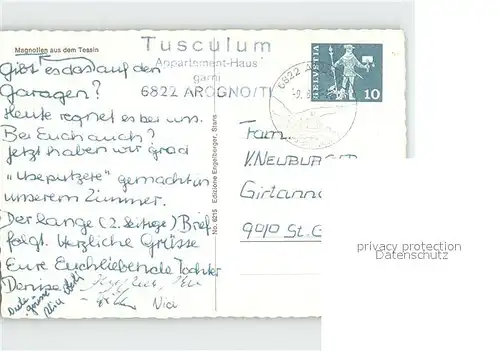 Magnolien aus dem Tessin
Tusculum
Appartement-Haus
garni
6822 AROGNO/TI
6822 A
HELVETIA
10
Gibt es das auf den
Garagen?
Heute regnet es bei uns.
Bei Euch auch?
Jetzt haben wir grad
"useputzete" gemacht in
unserem Zimmer.
Der lange (2. Seitige) Brief
folgt. Herzliche Grüsse
Eure Euch liebende Tochter
Denise
Nici
No. 6215 Edizione Engelberger, Stans
Fam.
V. NEUBURGER
Girtanne
9010 St. G
privacy protection
Datenschutz